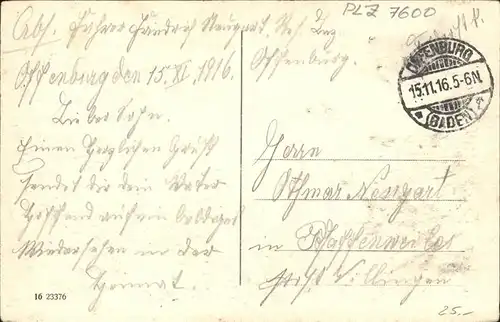 PLZ 7600
Abs. Fahrer Friedrich Neugart. Res. Laz
Offenburg.
Offenburg den 15. XI. 1916.
Lieber Sohn.
Einen Herzlichen Gruß
sendet dir dein Vater
Hoffend auf ein baldiges
Wiedersehen in der
Heimat.
OFFENBURG
15.11.16.5-6N.
* (BADEN) 2
Herrn
Othmar Neugart
in Pfaffenweiler
post Villingen
16 23376
25.-